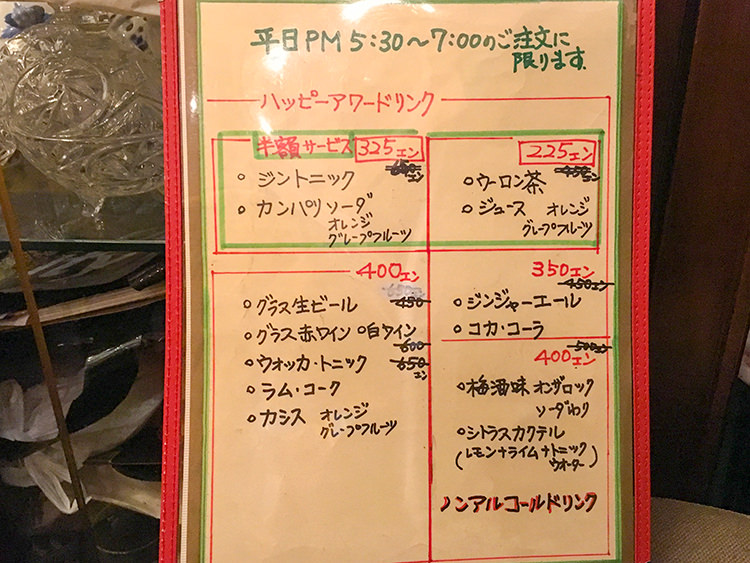 平日PM 5:30〜7:00のご注文に
限ります.
ハッピーアワードリンク
半額サービス 325エン
650エン
○ ジントニック
○ カンパリソーダ
オレンジ
グレープフルーツ
225エン
450エン
○ ウーロン茶
○ ジュース オレンジ
グレープフルーツ
400エン
○ グラス生ビール 450
○ グラス赤ワイン ○白ワイン
600
○ ウォッカ・トニック 650エン
○ ラム・コーク
○ カシス オレンジ
グレープフルーツ
350エン
450エン
○ ジンジャーエール
○ コカ・コーラ
500エン
400エン
○ 梅酒味 オンザロック
ソーダわり
○ シトラスカクテル
(レモン+ライム+トニック
ウオーター)
ノンアルコールドリンク